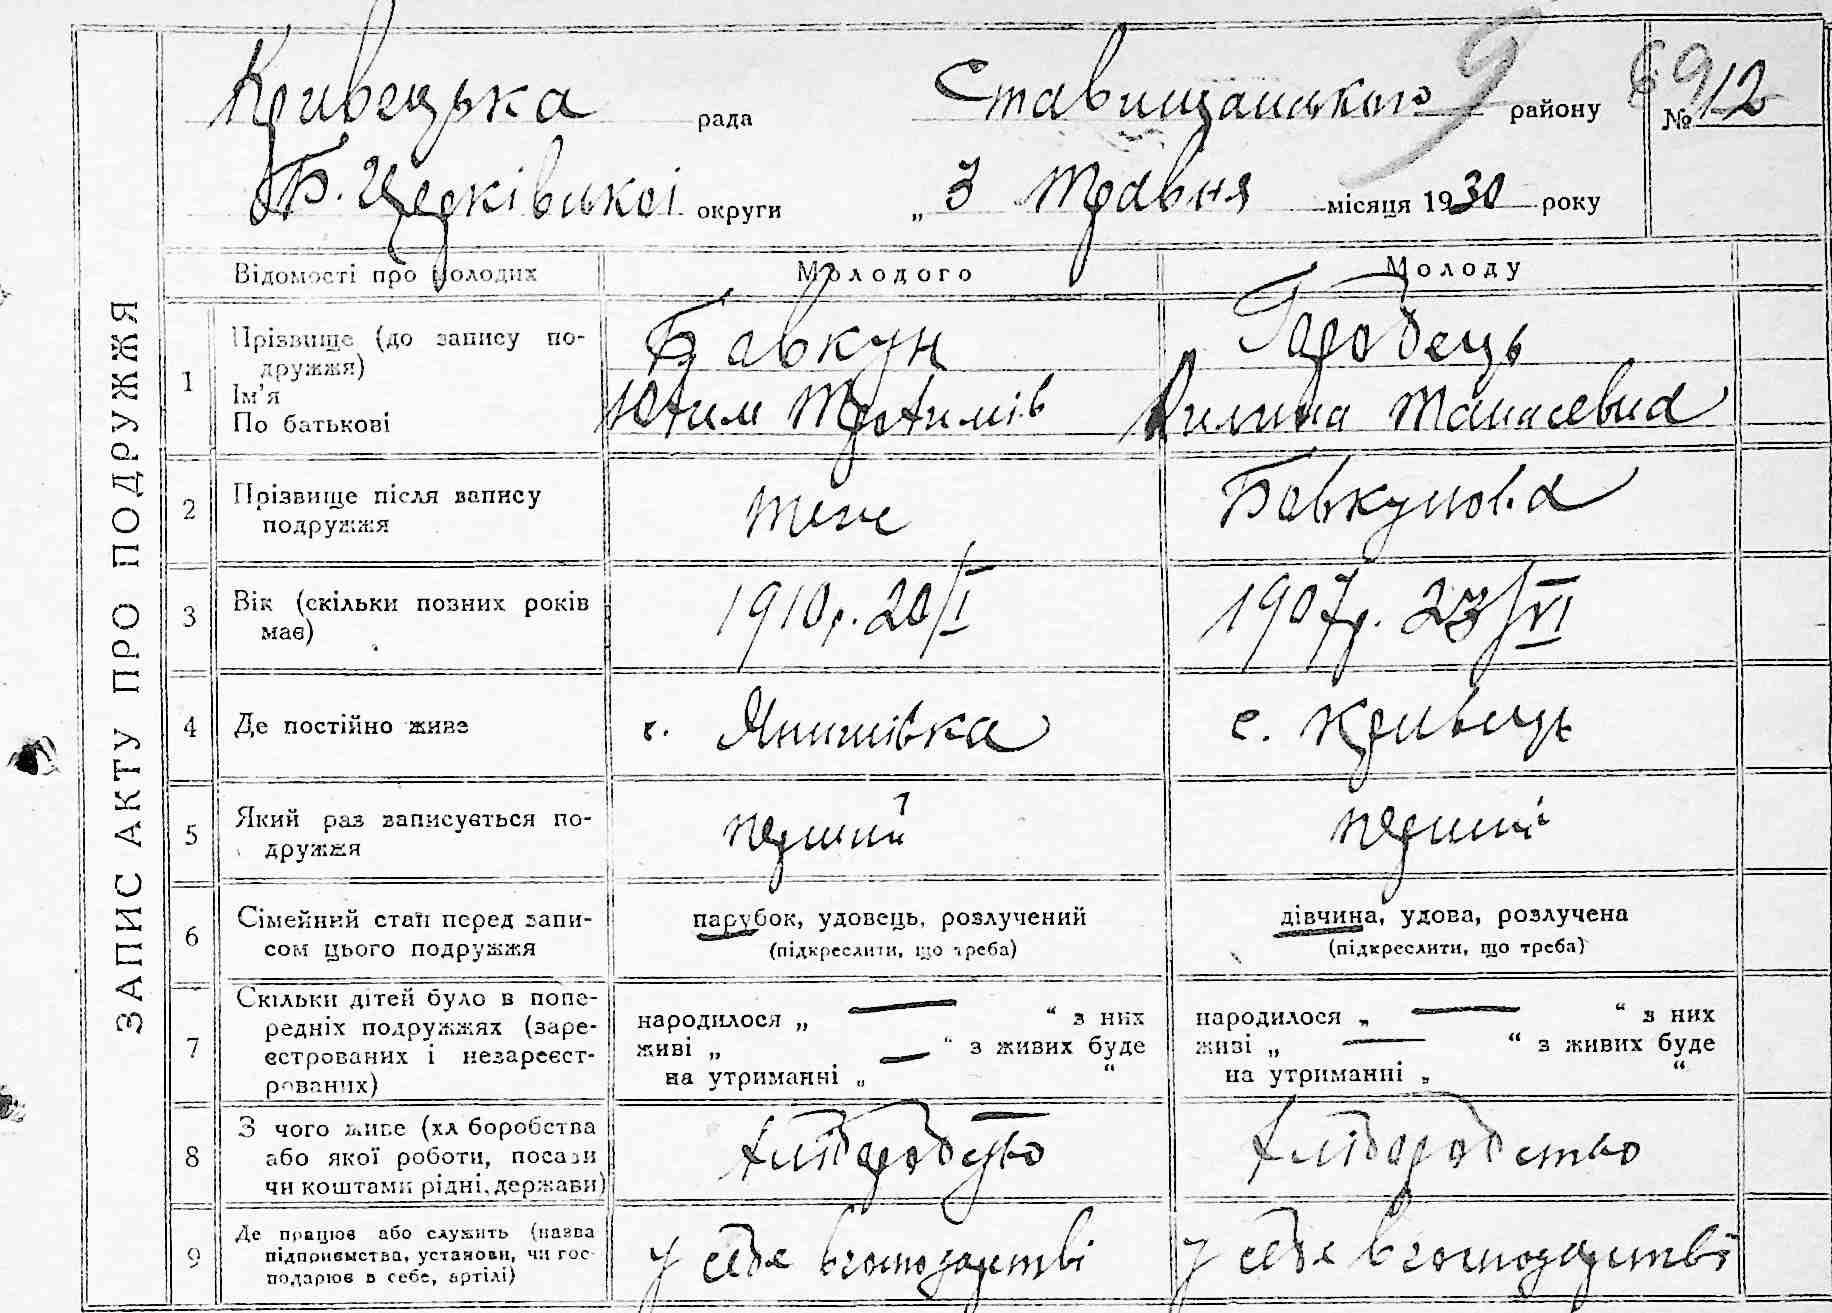 Кривецька рада Ставищанського району № 12
9
69
Б. Церківської округи „ 3 Травня місяця 1930 року
ЗАПИС АКТУ ПРО ПОДРУЖЖЯ
Відомості про молодих Молодого Молоду
1 Прізвище (до запису по-
дружжя)
Ім'я
По батькові
Бавкун Городець
Юхим Трохимів Килина Танасевна
2 Прізвище після запису
подружжя
теж Бавкунова
3 Вік (скільки повних років
має)
1910 р. 20/I 1907 р. 23/VI
4 Де постійно живе с. Янишівка с. Кривець
5 Який раз записується по-
дружжя
перший перший
6 Сімейний стан перед запи-
сом цього подружжя
парубок, удовець, розлучений дівчина, удова, розлучена
(підкреслити, що треба) (підкреслити, що треба)
7 Скільки дітей було в попе-
редніх подружжях (заре-
єстрованих і незареєст-
рованих)
народилося „ — “ з них народилося „ — “ з них
живі „ — “ з живих буде живі „ — “ з живих буде
на утриманні „ “ на утриманні „ “
8 З чого живе (хліборобства
або якої роботи, посади
чи коштами рідні, держави)
хліборобство хліборобство
9 Де працює або служить (назва
підприємства, установи, чи гос-
подарює в себе, артілі)
у себе в господарстві у себе в господарстві